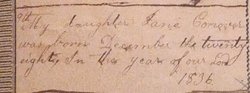 My daughter Jane
was born December the twenty
eight, In the year of our Lord
1836